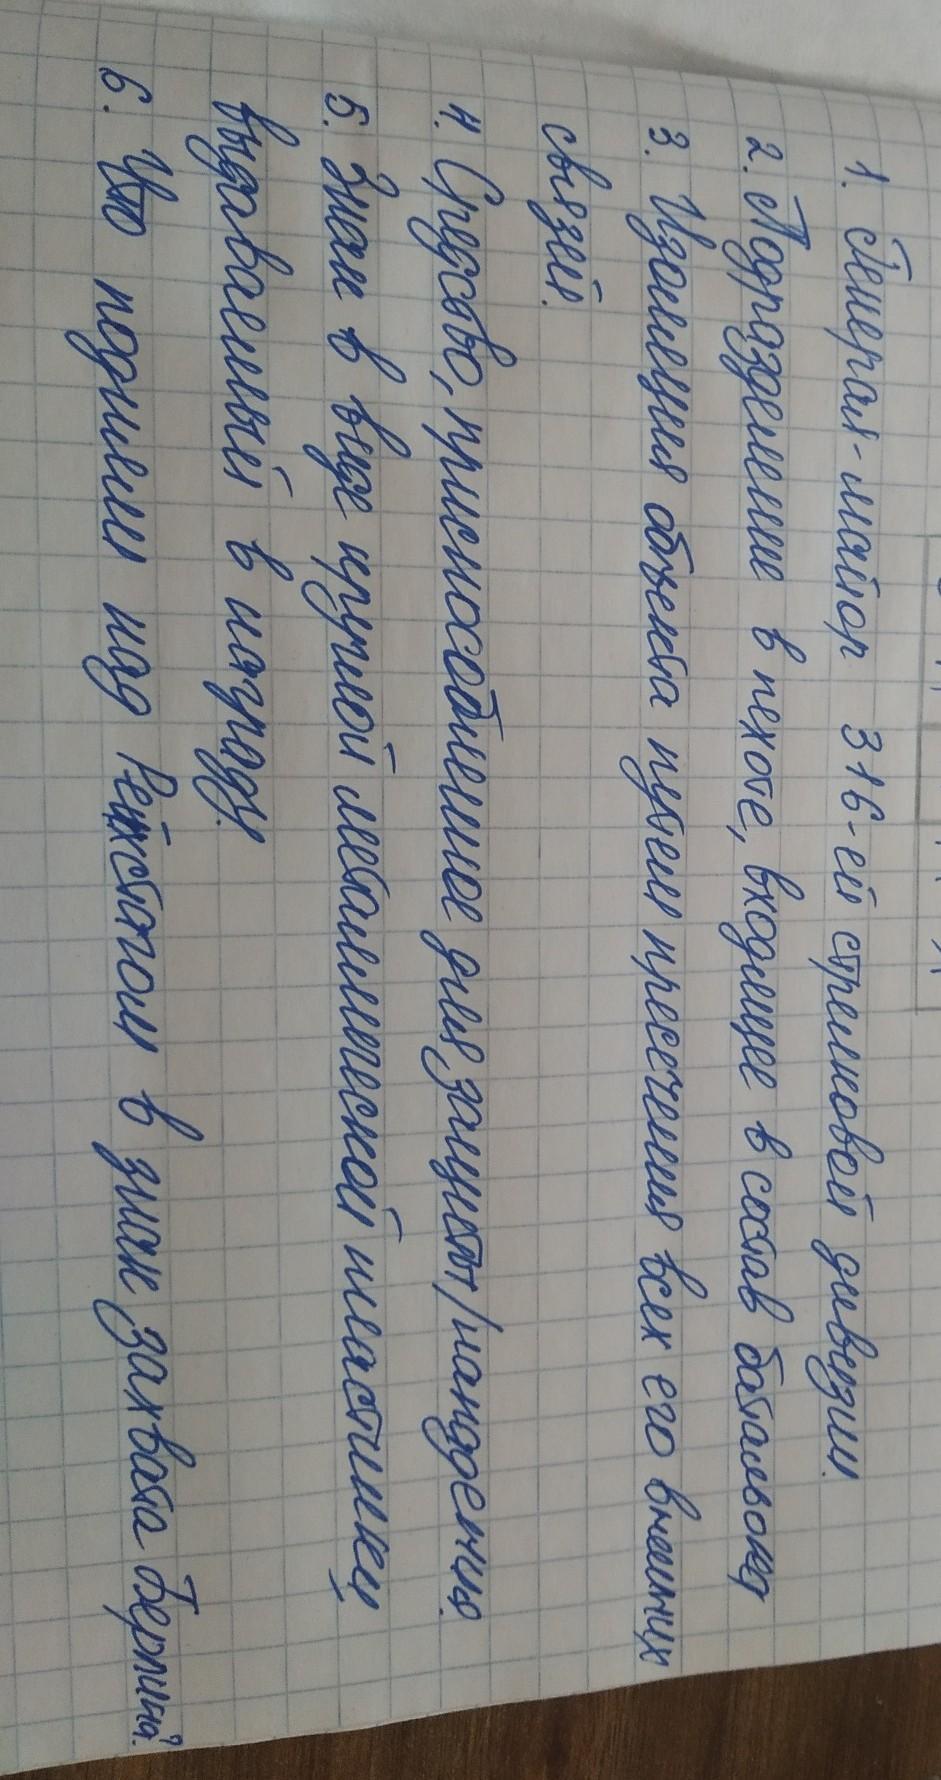 1. Генерал-майор 316-ей стрелковой дивизии.
2. Подразделение в пехоте, входящее в состав батальона
3. Изоляция объекта путём пресечения всех его внешних
связей.
4. Средство, приспособленное для защиты/нападения.
5. Знак в виде круглой металлической пластинки,
выдаваемый в награду.
6. Что подняли над Рейхстагом в знак захвата Берлина?